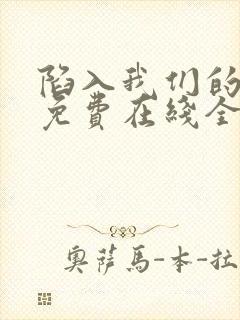 陷入我们的
免費在綫全
奥萨馬-本-拉